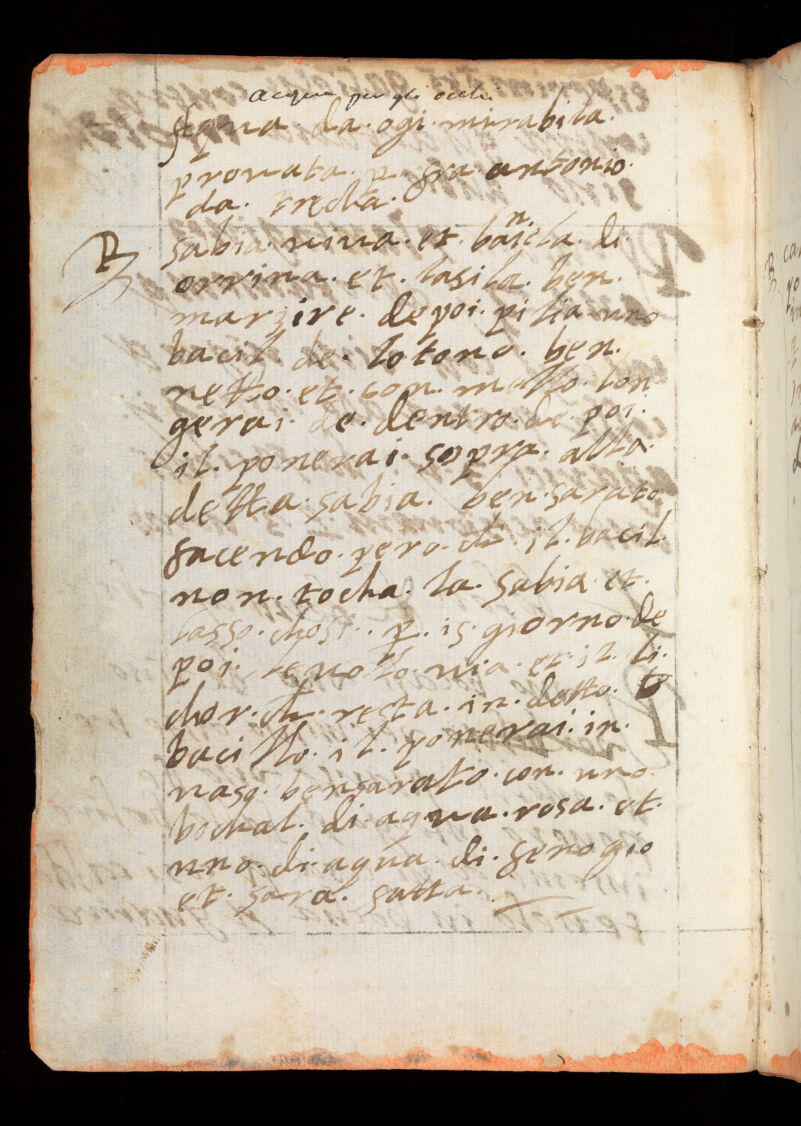 acqua per gli ochi
da ogi mirabila
provata p. fra antonio
da trecta
℞ sabia viva et bagnela di
orrina et lasila ben
marzire depoi pilia uno
bacil de lotono ben
netto et con mello lon
gerai de dentro de poi
il ponerai sopra alla
detta sabia ben sarato
facendo pero ch il bacil
non tocha la sabia et
lasso chosi p. 15 giorno de
poi levollo via et il li
chor ch resta in detto
bacillo il ponerai in
vaso bensarato con uno
bochal di aqua rosa et
uno di aqua di fenogio
et sara fatta